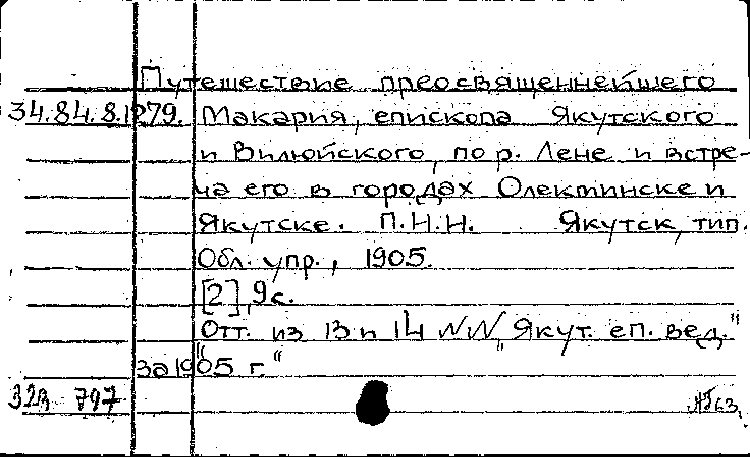 Путешествие преосвященнейшего
34.84.8.1279. Макария, епископа Якутского
и Вилюйского, по р. Лене и встре-
ча его в городах Олекминске и
Якутске. П.Н.Н. Якутск, тип.
Обл. упр., 1905.
[2], 9 с.
Отт. из 13 и 14 NN „Якут. еп. вед."
за 1905 г."
797